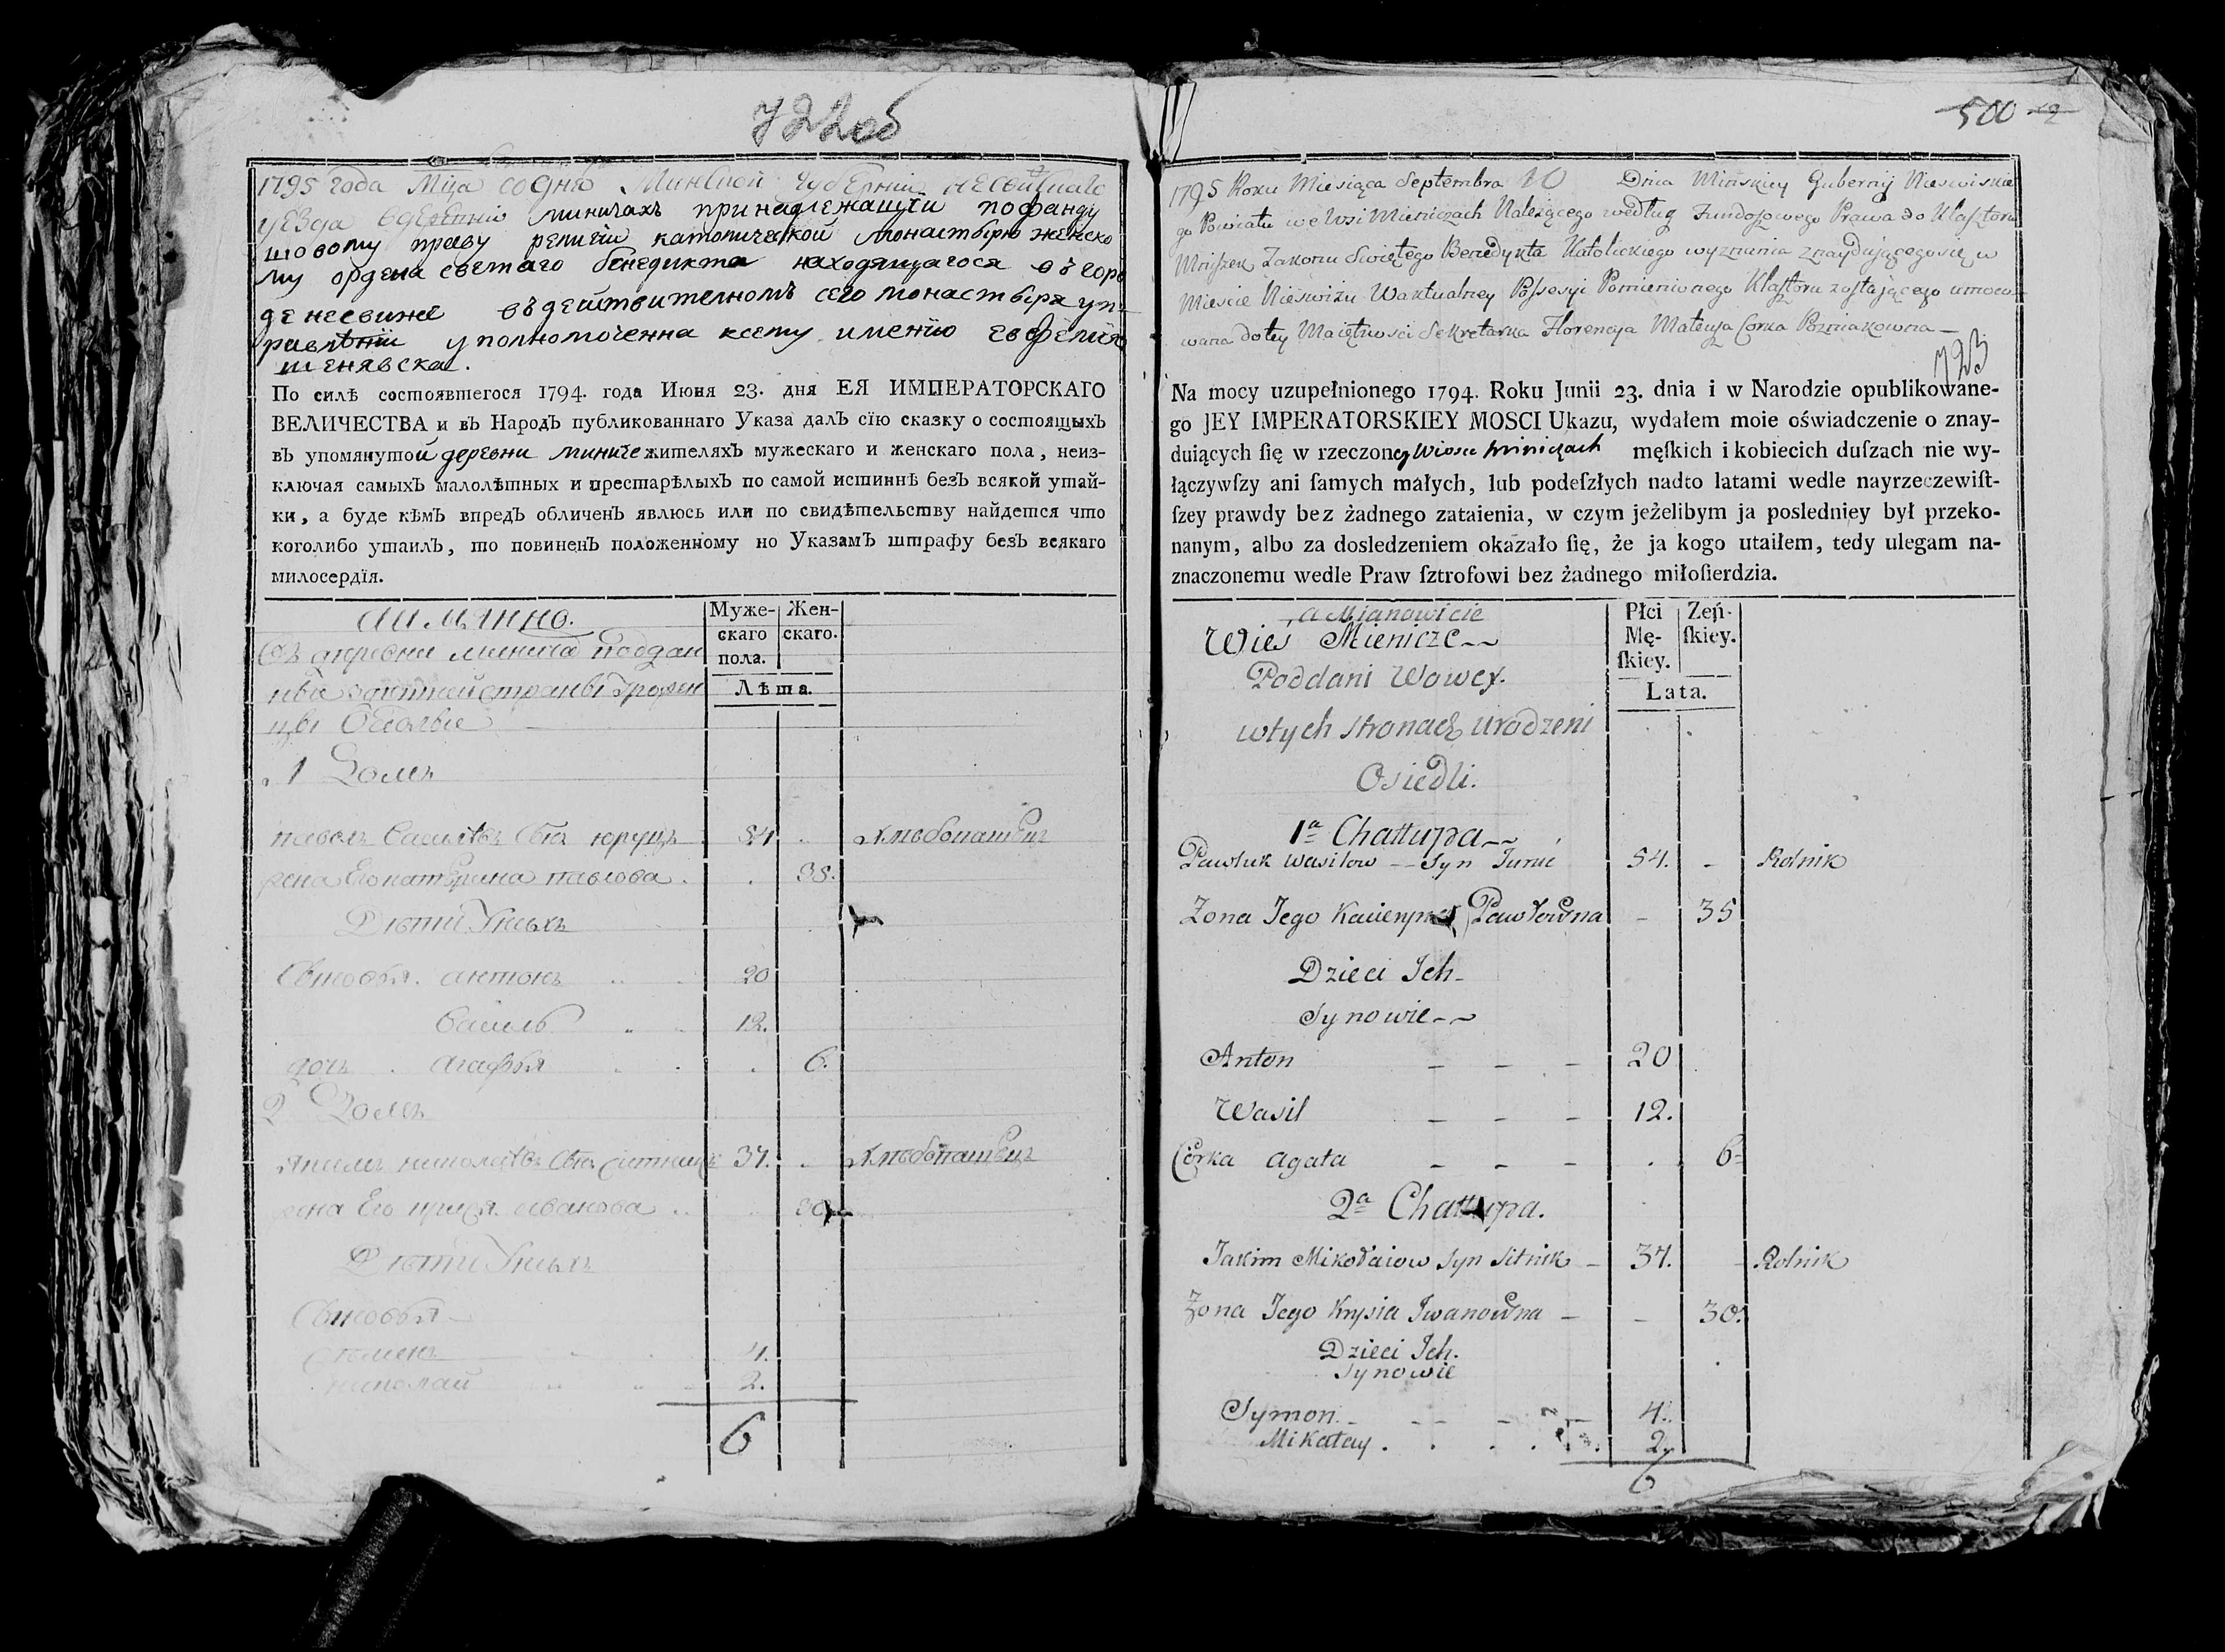 722об
1795 года Мца со дню Минской губернии Несвижскаго
уезда вдеревни миничахъ принадлежащи пофанду
шовому праву религии католической монастырю женско
му ордена светаго бенедикта находящагося въ горо
де несвиже въ действителномъ сего монастыря уп-
равлении уполномоченна ксему имению евфемия
шенявска.
По силѣ состоявшегося 1794. года Июня 23. дня ЕЯ ИМПЕРАТОРСКАГО
ВЕЛИЧЕСТВА и въ Народъ публикованнаго Указа далъ сїю сказку о состоящихъ
въ упомянутой деревни миниче жителяхъ мужескаго и женскаго пола, неиз-
ключая самыхъ малолѣтных и престарѣлыхъ по самой истиннѣ безъ всякой утай-
ки, а буде кѣмъ впредъ обличенъ явлюсь или по свидѣтельству найдется что
коголибо утаилъ, то повиненъ положенному по Указамъ штрафу безъ всякаго
милосердїя.
аимянно.
Муже-скаго пола. Жен-скаго.
Лѣта.
Въ деревни миниче поддан
ные
1 Домъ
павелъ васильевъ сынъ юруцъ 54 хлебопашецъ
жена Его катерина павлова 35.
Дети Ихъ
Сыновья. антонъ 20
василь 12.
дочь агафья 6.
2 Домъ
Якимъ николаевъ сынъ ситникъ 37. хлебопашецъ
жена Его крися иванова 30
Дети Ихъ
Сыновья
семенъ 4.
николай 2.
6
500
1795 Roku Miesiąca Septembra 10 Dnia Mińskiey Gubernij Nieswiskie
go Powiatu we Wsi Mieniczach Należącego według Funduszowego Prawa do Klasztoru
Mniszek Zakonu Swiętego Benedykta Katolickiego wyznania znayduiącego się w
Miescie Nieswiżu W aktualney Possesyi Pomienionego Klasztoru zostaiącego umoco-
wana do tey Maiętnosci Sekretarka Florencya Mateusza Corka Pozniakowna
723
Na mocy uzupełnionego 1794. Roku Junii 23. dnia i w Narodzie opublikowane-
go JEY IMPERATORSKIEY MOSCI Ukazu, wydałem moie oświadczenie o znay-
duiących ſię w rzeczoney Wiosce Miniczach męſkich i kobiecich duſzach nie wy-
łączywſzy ani ſamych małych, lub podeſzłych nadto latami wedle nayrzeczewiſt-
ſzey prawdy bez żadnego zataienia, w czym jeżelibym ja posledniey był przeko-
nanym, albo za dosledzeniem okazało ſię, że ja kogo utaiłem, tedy ulegam na-
znaczonemu wedle Praw ſztrofowi bez żadnego miłoſierdzia.
a Mianowicie
Płci Mę-ſkiey. Zeń-ſkiey.
Lata.
Wies Mienicze
Poddani Wowcy.
w tych stronach urodzeni
Osiedli.
1a Chattupa
Pawluk Wasilow Syn Juruć 54. - Rolnik
Zona Jego Pawłowna - 35
Dzieci Ich
Synowie
Anton 20
Wasil 12.
Córka Agata 6
2a Chattupa.
Jakim Mikołaiow Syn Sitnik 37. - Rolnik
Zona Jego Krysia Iwanowna - 30.
Dzieci Ich.
Synowie
Symon 4.
Mikałay 2.
6